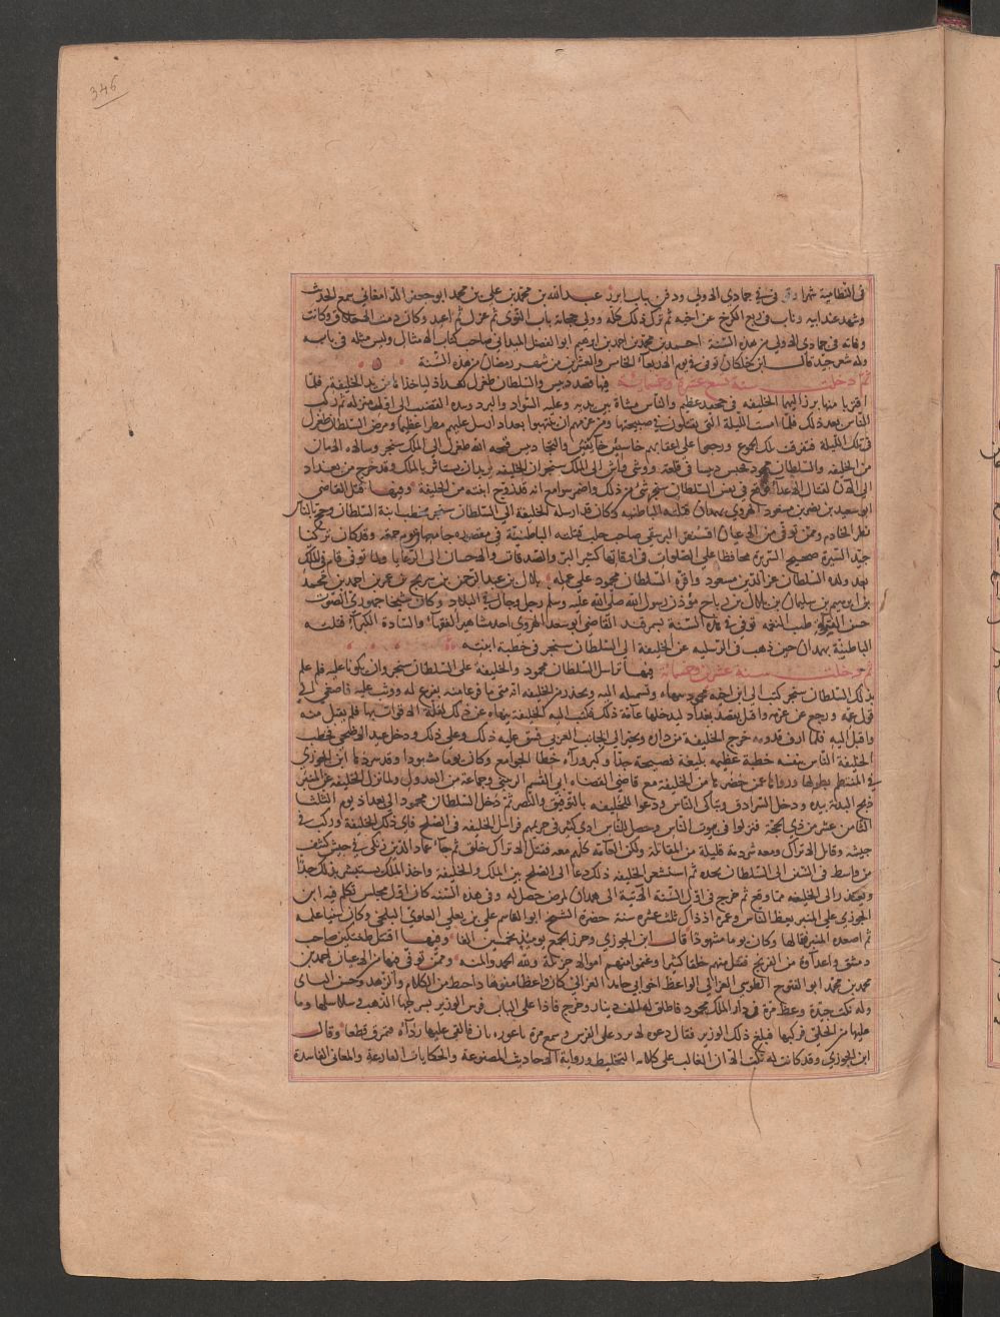 346
في النظامية شهرا وتوفي في جمادى الاولى ودفن بباب ابرز عبد الله بن محمد بن علي بن محمد ابو جعفر الدامغاني سمع الحديث
وشهد عند ابيه وناب في ربع الكرخ عن اخيه ثم ترك ذلك كله وولي حجابة باب النوبي ثم عزل ثم اعيد وكان دمث الاخلاق وكانت
وفاته في جمادى الاولى من هذه السنة احمد بن محمد بن احمد بن ابرهيم ابو الفضل الميداني صاحب كتاب الامثال وليس مثله في بابه
وله شعر جيد قال ابن خلكان توفي في يوم الاربعاء الخامس والعشرين من شهر رمضان من هذه السنة
ثم دخلت سنة تسع عشرة وخمسمائة فيها قصد دبيس والسلطان طغرل بغداد لياخذاها من يد الخليفة فلما
اقتربا منها برز اليهما الخليفة في جحفل عظيم والناس مشاة بين يديه وعليه السواد والبردة وبيده القضيب الى اول منزله ثم ركب
الناس بعد ذلك فلما امست الليلة التي يقتتلون في صبيحتها ومن عزمهم ان ينهبوا بغداد ارسل عليهم مطرا عظيما ومرض السلطان طغرل
في تلك الليلة فتفرقت تلك الجموع ورجعوا على اعقابهم خاسئين خائبين والتجا دبيس قبحه الله طغرل الى الملك سنجر وسالاه الامان
من الخليفة والسلطان محمود فحبس دبيسا في قلعة ووشى واش الى الملك سنجر ان الخليفة يريد ان يستاثر بالملك وقد خرج من بغداد
الى اللان لقتال الاعداء فوقع في نفس السلطان سنجر شي من ذلك واضمر سوا مع انه قد زوج ابنته من الخليفة وفيها قتل القاضي
ابو سعيد بن نصر بن مسعود الهروي بهمدان قتلته الباطنية وكان قد ارسله الخليفة الى السلطان سنجر فخطب ابنة السلطان وحج بالناس
نظر الخادم وممن توفي من الاعيان اقسنقر البرسقي صاحب حلب قتلته الباطنية في مقصورة جامعها يوم جمعة وقد كان تركيا
جيد السيرة صحيح السريرة محافظا على الصلوات في اوقاتها كثير البر والصدقات والاحسان الى الرعايا ولما توفي قام في الملك
بعده ولده السلطان عز الدين مسعود واقره السلطان محمود على عمله بلال بن عبد الرحمن بن سريج بن عمر بن احمد بن محمد
بن ابرهيم بن سليمان بن بلال بن رباح مؤذن رسول الله صلى الله عليه وسلم رحل وجال في البلاد وكان شيخا جهوري الصوت
حسن القراءة طيب النغمة توفي في هذه السنة بسمرقند القاضي ابو سعد الهروي احد مشاهير الفقهاء والسادة الكبراء قتلته
الباطنية بهمدان حين ذهب في الرسلية عن الخليفة الى السلطان سنجر في خطبة ابنته
ثم دخلت سنة عشرين وخمسمائة فيها تراسل السلطان محمود والخليفة على السلطان سنجر وان يكونا عليه فلما علم
بذلك السلطان سنجر كتب الى ابن اخيه محمود ينهاه ويستميله اليه ويحذره من الخليفة انه متى ما فرغ منه يفزع له ووثب عليه فاصغى الى
قول عمه ورجع عن عزمه واقبل يقصد بغداد ليدخلها عامه ذلك فكتب اليه الخليفة ينهاه عن ذلك لقلة الاقوات بها فلم يقبل منه
واقبل اليه فلما ازف قدومه خرج الخليفة من داره وتحيز الى الجانب الغربي فشق عليه ذلك وعلى ذلك ودخل عيد الاضحى فخطب
الخليفة الناس بنفسه خطبة عظيمة بليغة فصيحة جدا وكبر وراءه خطباء الجوامع وكان يوما مشهودا وقد سردها ابن الجوزي
في المنتظم بطولها ورواها عن من حضرها من الخليفة مع قاضي القضاة ابي القسم الزينبي وجماعة من العدول ولما نزل الخليفة عن المنبر
ذبح البدنة بيده ودخل السرادق وتباكى الناس ودعوا للخليفة بالتوفيق والنصر ثم دخل السلطان محمود الى بغداد يوم الثلثا
الثامن عشر من ذي الحجة فنزلوا في بيوت الناس وحصل للناس اذى كثير في حريمهم فراسل الخليفة في الصلح فابى ذلك الخليفة وركب في
جيشه وقاتل الاتراك ومعه شرذمة قليلة من المقاتلة ولكن العامة كلهم معه فقتل الاتراك خلق ثم جاء عماد الدين زنكي في جيش كثيف
من واسط في السفن الى السلطان نجدة ثم استشعر الخليفة ذلك دعا الى الصلح بين الملك والخليفة واخذ الملك يستبشر بذلك جدا
ويعتذر الى الخليفة مما وقع ثم خرج في اول السنة الاتية الى همدان لمرض حصل له وفي هذه السنة كان اول مجلس تكلم فيه ابن
الجوزي على المنبر يعظ الناس وعمره اذ ذاك ثلث عشرة سنة حضره الشيخ ابو القاسم علي بن يعلى العلوي البلخي وكان سنيا علمه
ثم اصعده المنبر فقالها وكان يوما مشهودا قال ابن الجوزي وحرز الجمع يومئذ بخمسين الفا وفيها اقتتل طغتكين صاحب
دمشق واعداوه من الفرنج فقتل منهم خلقا كثيرا وغنم منهم اموالا جزيلة ولله الحمد والمنة وممن توفي فيها من الاعيان احمد بن
محمد بن محمد ابو الفتوح الطوسي الغزالي الواعظ اخو ابي حامد الغزالي كان واعظا مفوها ذا حظ من الكلام والزهد وحسن التاني
وله نكت جيدة وعظ مرة في دار الملك محمود فاطلق له الف دينار وخرج فاذا على الباب فرس الوزير بسرجها الذهب وسلاسلها وما
عليها من الحلي فركبها فبلغ ذلك الوزير فقال دعوه لا يرد على الفرس وسمع مرة ناعورة تان فالقى عليها رداءه فتمزق قطعا وقال
ابن الجوزي وقد كانت له نكت الا ان الغالب على كلامه التخليط ورواية الاحاديث المصنوعة والحكايات الفارغة والمعاني الفاسدة